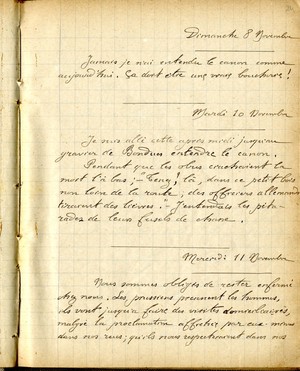 Dimanche 8 Novembre
Jamais je n'ai entendu le canon comme
aujourd'hui. Ça doit être une vraie boucherie!
Mardi 10 Novembre
Je suis allé cette après midi jusqu'au
gravier de Bondus entendre le canon.
Pendant que les obus crachaient la
mort là bas; - Teng! là, dans ce petit bois
non loin de la route, des officiers allemands
tiraient des lièvres. - J'entendais les péta-
rades de leurs fusils de chasse.
Mercredi 11 Novembre
Nous sommes obligés de rester enfermé
chez nous. des prussiens prennent les hommes,
ils vont jusqu'a faire des visites domiciliaires,
malgré la proclamation affichée par eux-mêmes
dans nos rues; qu'ils nous respecteraient dans nos